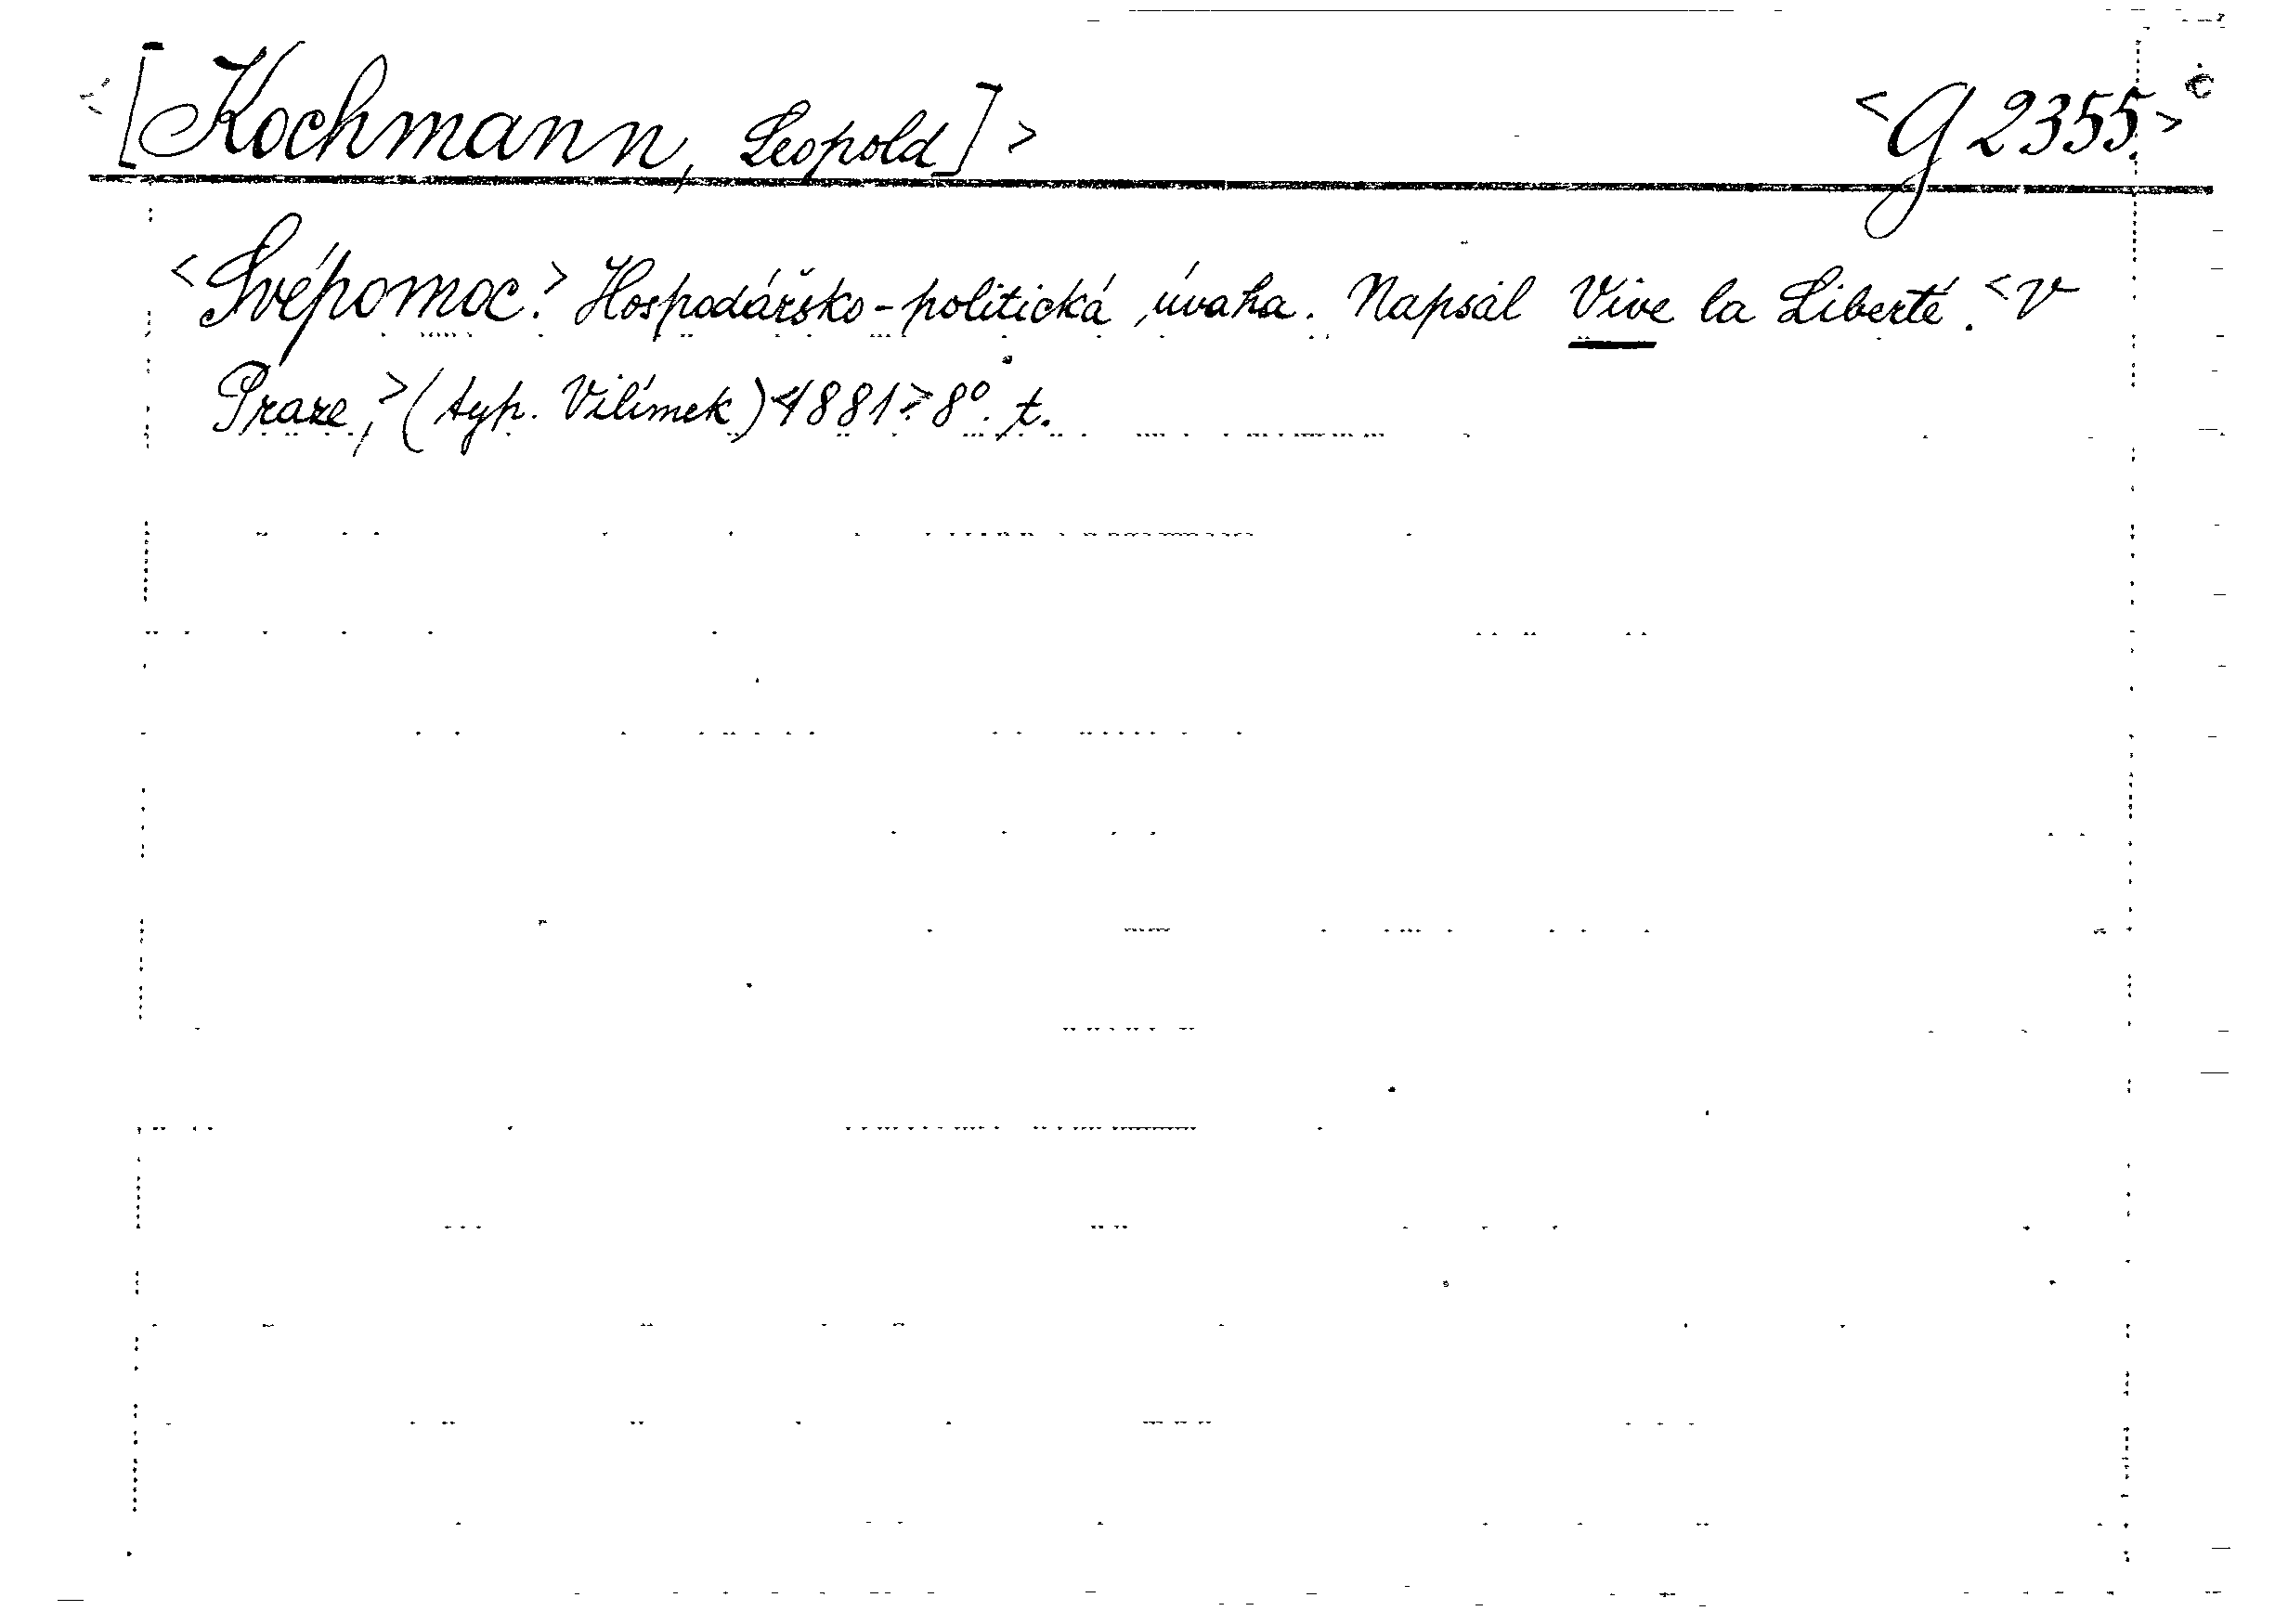 <[Kochmann, Leopold]> <G 2355.> č
<Svépomoc.> Hospodářsko-politická úvaha. Napsal Vive la Liberté. <V
Praze,> (typ. Vilímek) <1881.> 8°. t.